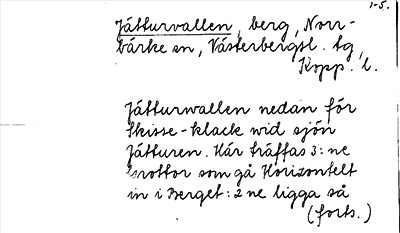 1-5.
Jätturvallen, berg, Norr-
bärke sn, Västerbergsl. tg,
Kopp. l.
Jätturwallen nedan för
Skisse-klack wid sjön
Jätturen. Här träffas 3:ne
Grottor som gå Horizontelt
in i Berget: 2 ne ligga så
(forts.)